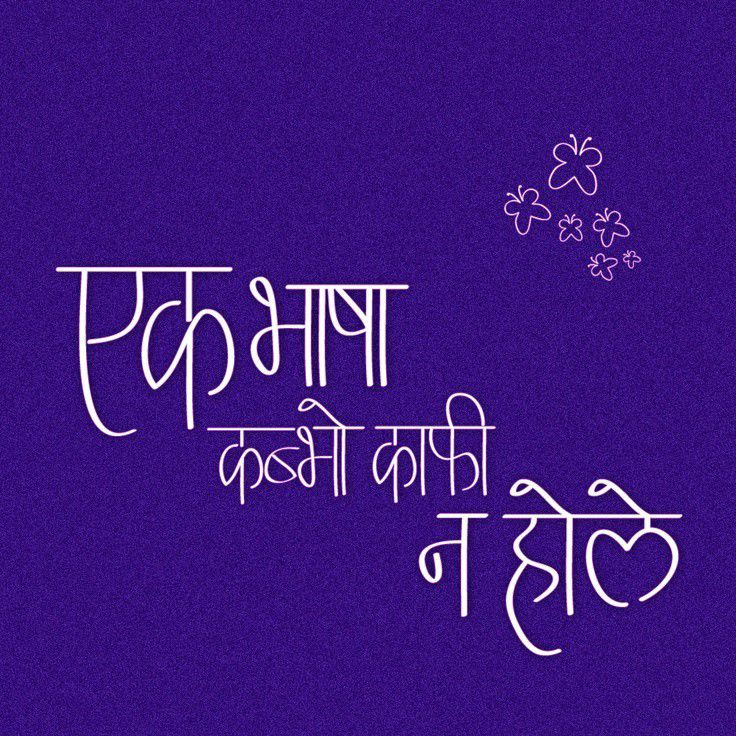 एक भाषा
कब्भो काफी
न होले